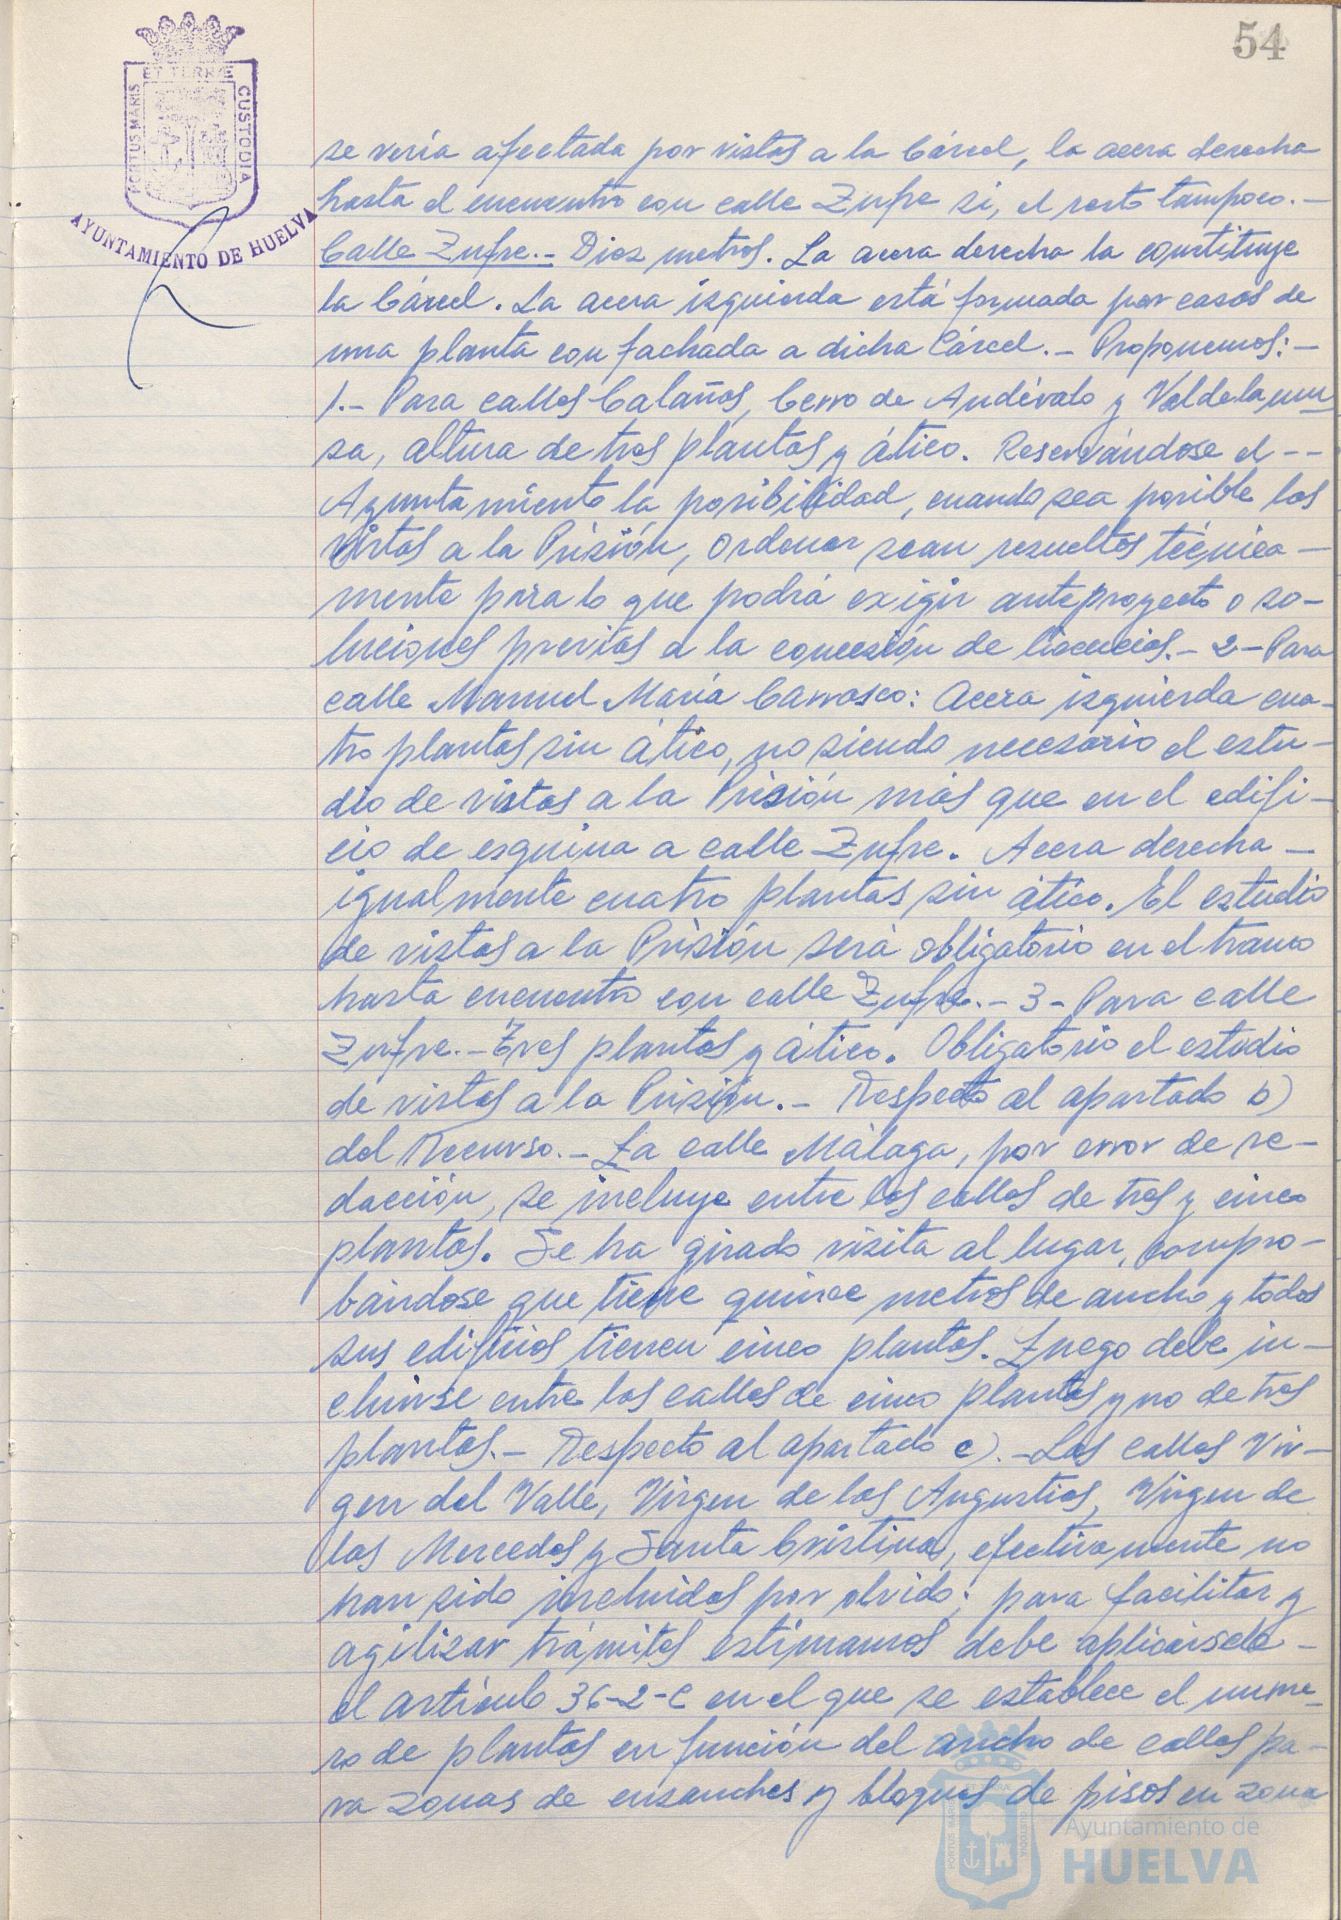 54
ET TERRÆ
PORTUS MARIS
CUSTODIA
AYUNTAMIENTO DE HUELVA
se vería afectada por vistas a la Cárcel, la acera derecha
hasta el encuentro con calle Zufre si, el resto tampoco.-
Calle Zufre.- Diez metros. La acera derecha la constituye
la Cárcel. La acera izquierda está formada por casas de
una planta con fachada a dicha Cárcel.- Proponemos:-
1.- Para calles Calañas, Cerro de Andévalo y Valdelamu
sa, altura de tres plantas y ático. Reservándose el --
Ayuntamiento la posibilidad, cuando sea posible las
vistas a la Prisión, ordenar sean resueltos técnica-
mente para lo que podrá exigir anteproyecto o so-
luciones previas a la concesión de licencias.- 2- Para
calle Manuel María Carrasco: Acera izquierda cua-
tro plantas sin ático, no siendo necesario el estu-
dio de vistas a la Prisión más que en el edifi-
cio de esquina a calle Zufre. Acera derecha -
igualmente cuatro plantas sin ático. El estudio
de vistas a la Prisión será obligatorio en el tramo
hasta encuentro con calle Zufre.- 3- Para calle
Zufre.- Tres plantas y ático. Obligatorio el estudio
de vistas a la Prisión.- Respecto al apartado b)
del Recurso.- La calle Málaga, por error de re-
dacción, se incluye entre las calles de tres y cinco
plantas. Se ha girado visita al lugar, compro-
bándose que tiene quince metros de ancho y todos
sus edificios tienen cinco plantas. Luego debe in-
cluirse entre las calles de cinco plantas y no de tres
plantas.- Respecto al apartado c).- Las calles Vir-
gen del Valle, Virgen de las Angustias, Virgen de
las Mercedes y Santa Cristina, efectivamente no
han sido incluidas por olvido; para facilitar y
agilizar trámites estimamos debe aplicársele -
el artículo 36-2-C en el que se establece el núme-
ro de plantas en función del ancho de calles pa-
ra zonas de ensanches y bloques de pisos en zona
Ayuntamiento de
HUELVA